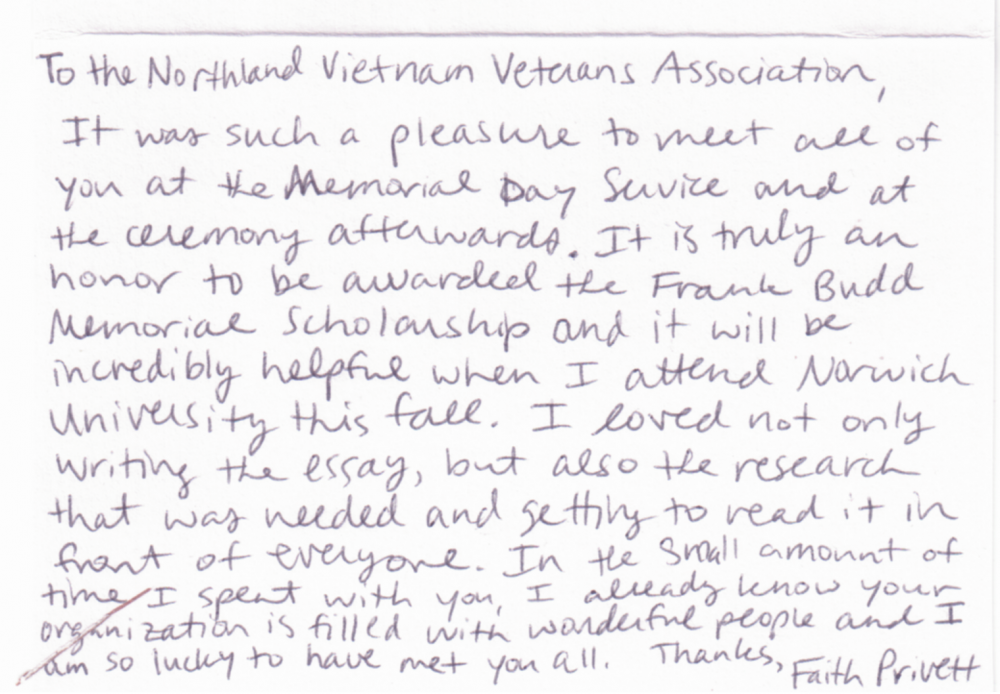 To the Northland Vietnam Veterans Association,
It was such a pleasure to meet all of
you at the Memorial Day Service and at
the ceremony afterwards. It is truly an
honor to be awarded the Frank Budd
Memorial Scholarship and it will be
incredibly helpful when I attend Norwich
University this fall. I loved not only
writing the essay, but also the research
that was needed and getting to read it in
front of everyone. In the small amount of
time I spent with you, I already know your
organization is filled with wonderful people and I
am so lucky to have met you all. Thanks, Faith Privett